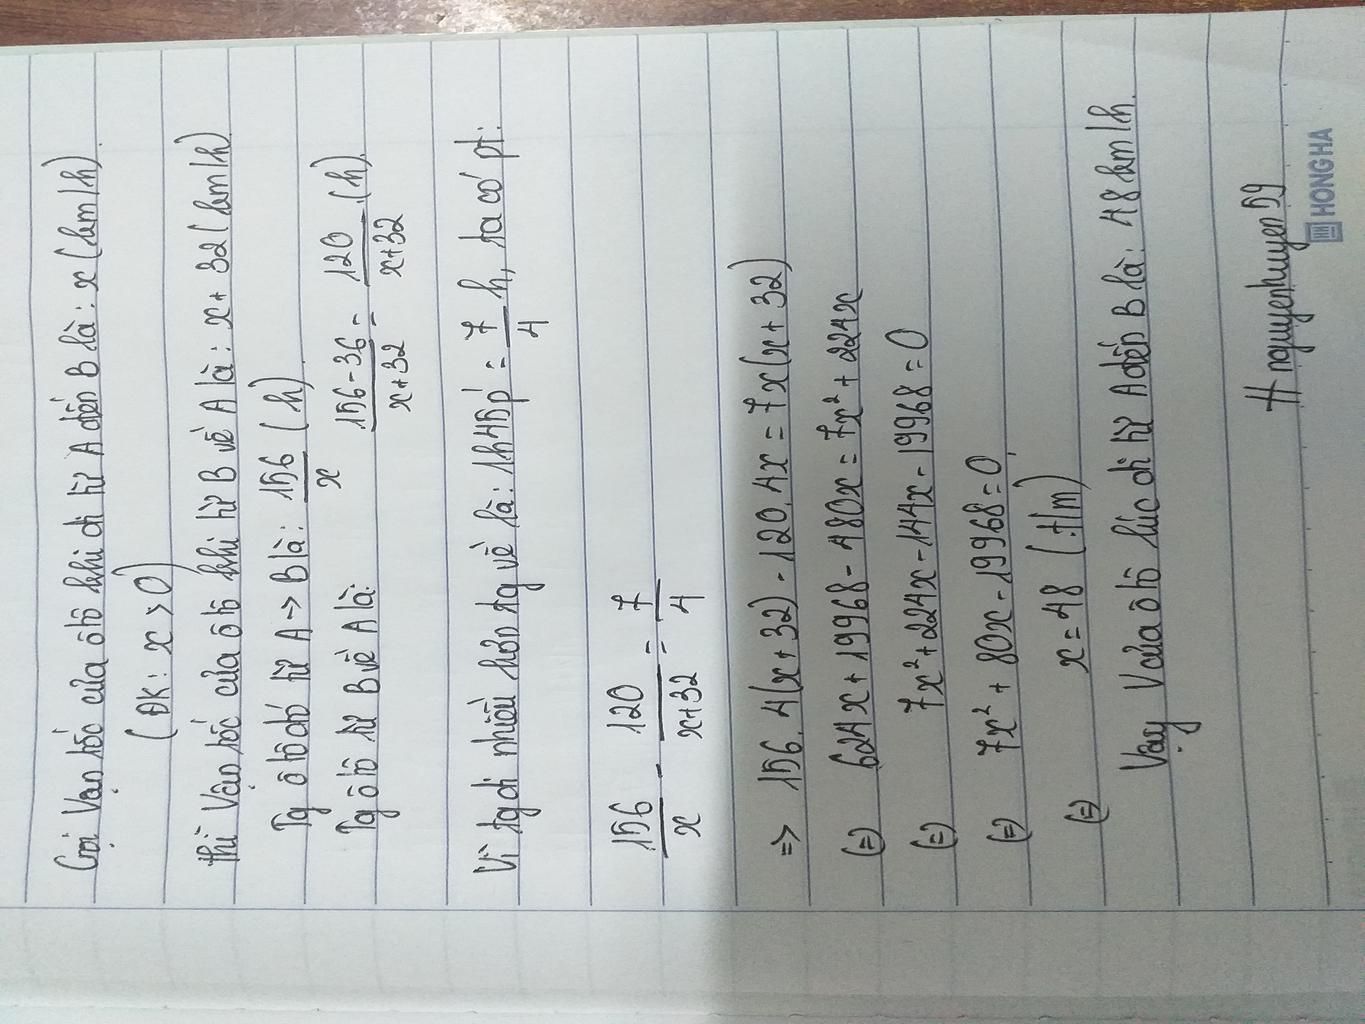 Gọi Vận tốc của ôtô khi đi từ A đến B là: x (km/h).
(ĐK: x > 0)
thì Vận tốc của ôtô khi từ B về A là: x + 32 (km/h)
Tg ôtô đó từ A -> B là: 156/x (h)
Tg ôtô từ B về A là: (156-36)/(x+32) = 120/(x+32) (h).
Vì tg đi nhiều hơn tg về là: 1h45p' = 7/4 h, ta có pt:
156/x - 120/(x+32) = 7/4
=> 156.4(x+32) - 120.4x = 7x(x+32)
(=) 624x + 19968 - 480x = 7x² + 224x
(=) 7x² + 224x - 144x - 19968 = 0
(=) 7x² + 80x - 19968 = 0
(=) x = 48 (t/m)
Vậy V của ôtô lúc đi từ A đến B là: 48 km/h.
# nguyenhuyen59
HONG HA